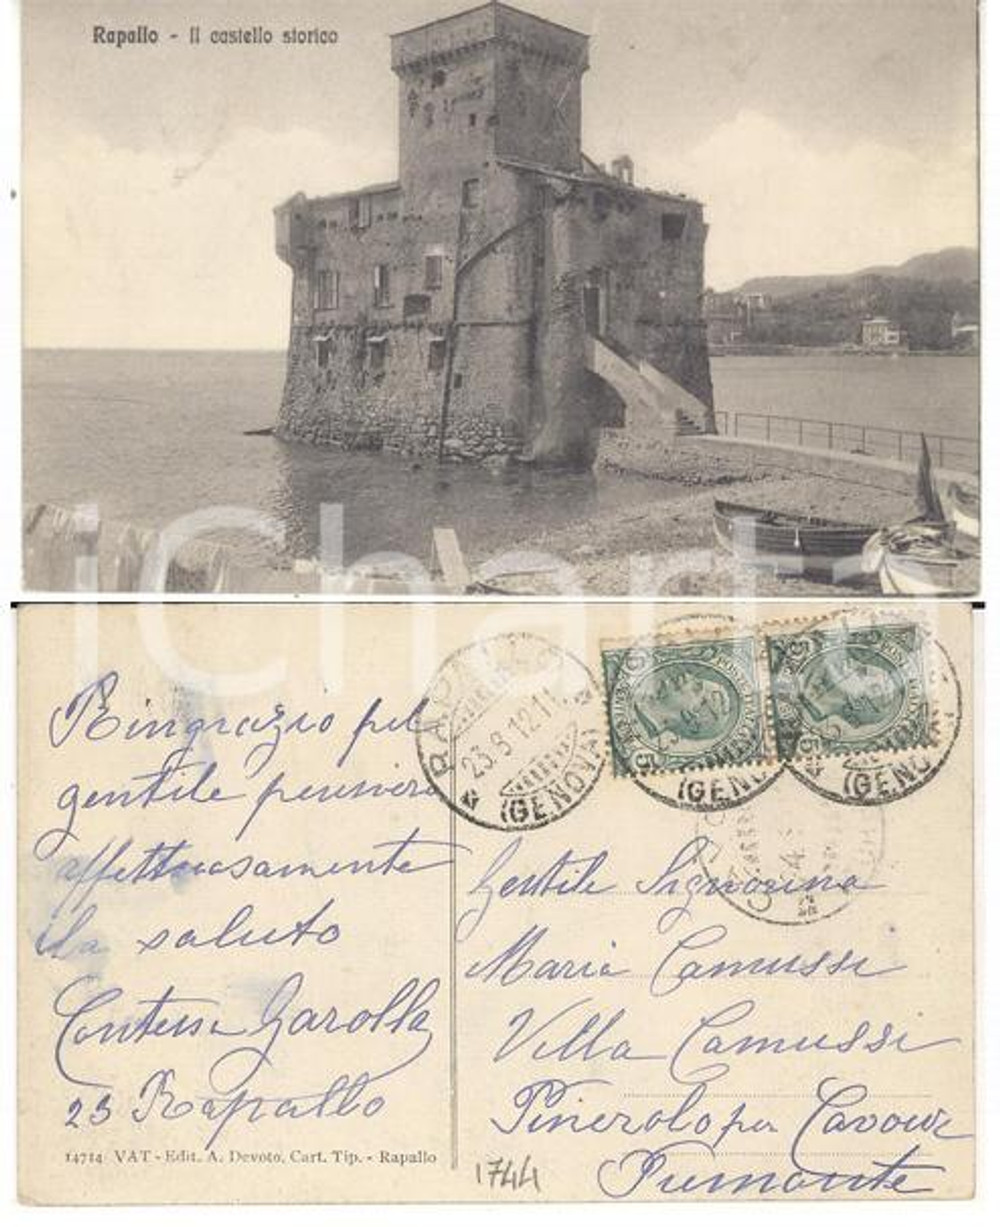 Rapallo - Il castello storico
iCharta
Ringrazio pel
gentile pensiero
affettuosamente
la saluto
Contessa Garolla
23 Rapallo
14714 VAT - Edit. A. Devoto, Cart. Tip. - Rapallo
RAPALLO
23.8.12.11
(GENOVA)
5
(GENOVA)
5
(GENOVA)
Gentile Signorina
Maria Camussi
Villa Camussi
Pinerolo per Cavour
Piemonte
1744